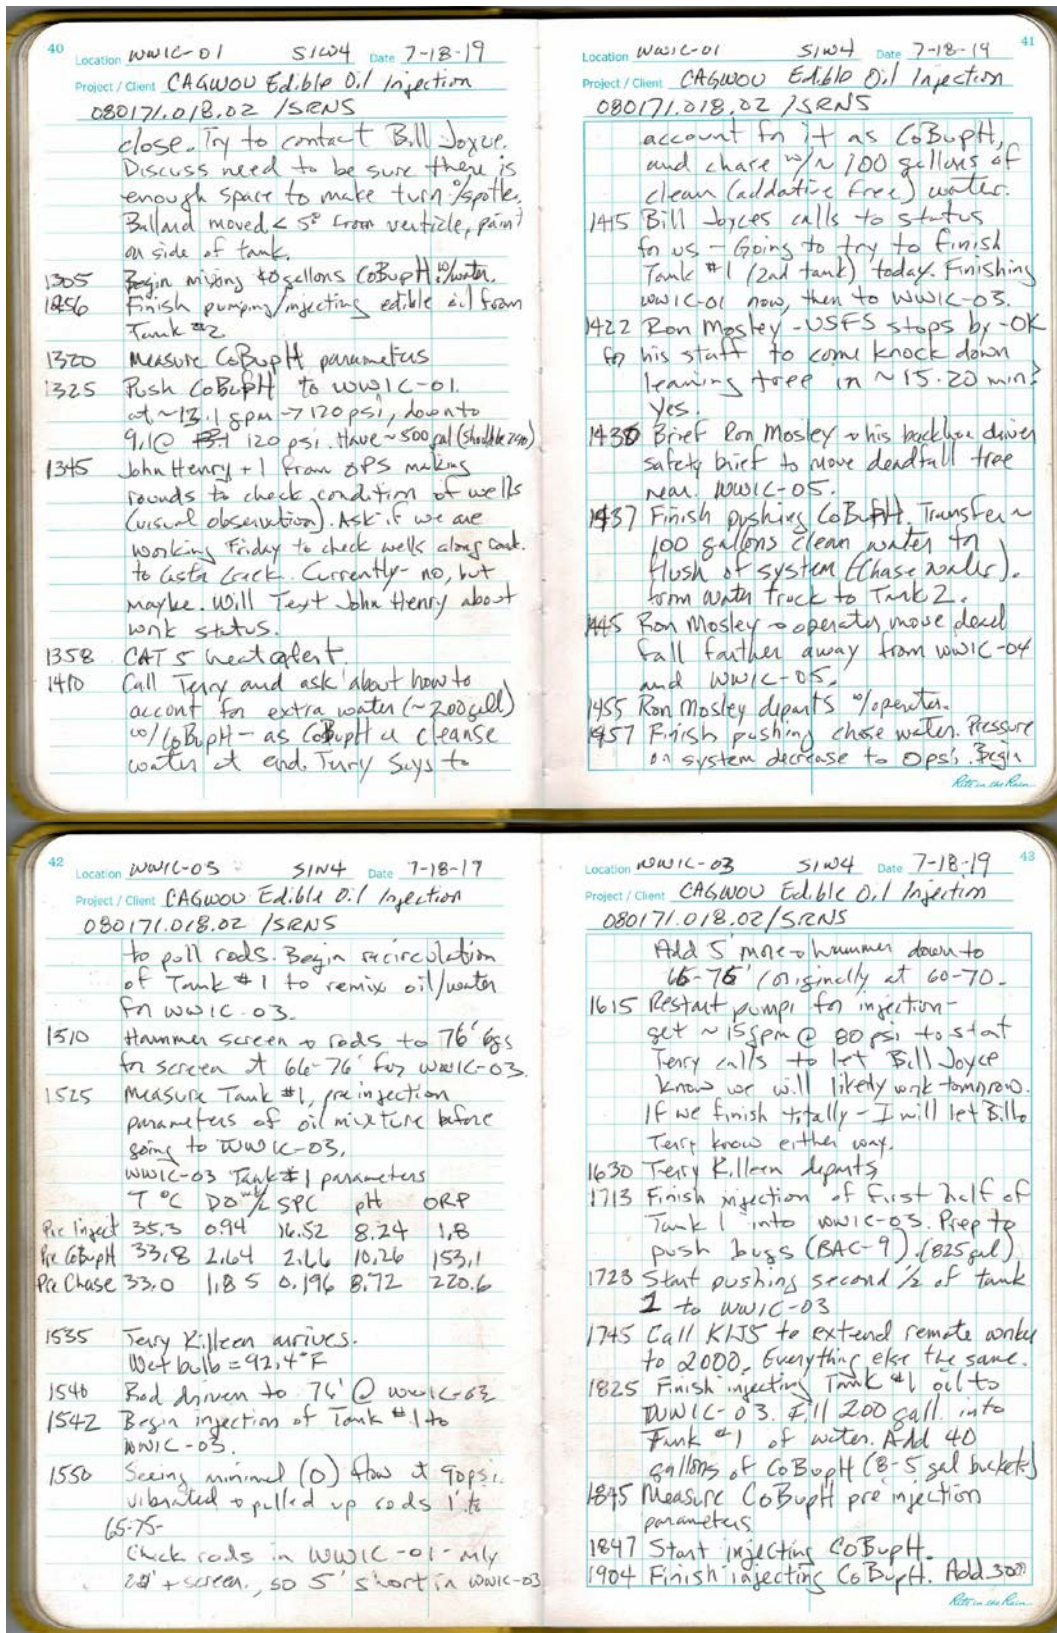 40
Location WWIC-01 SIW4 Date 7-18-19
Project / Client CAGWOU Edible Oil Injection
080171.018.02 /SRNS
close. Try to contact Bill Joyce.
Discuss need to be sure there is
enough space to make turn w/spotter.
Ballard moved < 5° from verticle, paint
on side of tank.
1305 Begin mixing 40 gallons CoBupH w/water.
1256 Finish pumping/injecting edible oil from
Tank #2
1320 Measure CoBupH parameters
1325 Push CoBupH to WWIC-01.
at ~13.1 gpm → 120 psi, down to
9.1 @ 120 psi. Have ~500 gal (should be 240)
1345 John Henry + 1 from OPS making
rounds to check condition of wells
(visual observation). Ask if we are
working Friday to check wells along
to Castor Creek. Currently - no, but
maybe. Will Text John Henry about
work status.
1358 CAT 5 heat alert.
1410 Call Terry and ask about how to
accont for extra water (~200 gall)
w/CoBupH - as CoBupH or cleanse
water at end. Terry Says to
41
Location WWIC-01 SIW4 Date 7-18-19
Project / Client CAGWOU Edible Oil Injection
080171.018.02 /SRNS
account for it as CoBupH,
and chase w/~ 100 gallons of
clean (addative free) water.
1415 Bill Joyces calls to status
for us - Going to try to finish
Tank #1 (2nd tank) today. Finishing
WWIC-01 now, then to WWIC-03.
1422 Ron Mosley - USFS stops by - OK
for his staff to come knock down
leaning tree in ~15-20 min?
Yes.
1430 Brief Ron Mosley & his backhoe driver
safety brief to move deadfall tree
near WWIC-05.
1437 Finish pushing CoBupH. Transfer ~
100 gallons clean water to
flush of system (Chase water).
from water truck to Tank 2.
1445 Ron Mosley & operator move dead
fall farther away from WWIC-04
and WWIC-05.
1455 Ron Mosley departs w/operator.
1457 Finish pushing chase water. Pressure
on system decrease to 0 psi. Begin
Rite in the Rain
42
Location WWIC-03 SIW4 Date 7-18-19
Project / Client CAGWOU Edible Oil Injection
080171.018.02 /SRNS
to pull rods. Begin recirculation
of Tank #1 to remix oil/water
for WWIC-03.
1510 Hammer screen & rods to 76' bgs
for screen at 66-76' for WWIC-03.
1525 Measure Tank #1, pre injection
parameters of oil mixture before
going to WWIC-03.
WWIC-03 Tank #1 parameters
T °C DO mg/L SPC pH ORP
Pre Inject 35.3 0.94 16.52 8.24 1.8
Pre CoBupH 33.8 2.64 2.66 10.26 153.1
Pre Chase 33.0 1.85 0.196 8.72 220.6
1535 Terry Killeen arrives.
Wet bulb = 92.4°F
1540 Rod driven to 76' @ WWIC-03
1542 Begin injection of Tank #1 to
WWIC-03.
1550 Seeing minimal (0) flow at 90psi.
vibrated & pulled up rods 1' to
65-75-
Check rods in WWIC-01 - only
+ screen, so 5' short in WWIC-03
43
Location WWIC-03 SIW4 Date 7-18-19
Project / Client CAGWOU Edible Oil Injection
080171.018.02/SRNS
Add 5' more & hammer down to
66-76' (originally at 60-70.
1615 Restart pumps for injection-
get ~15gpm @ 80 psi to start
Terry calls to let Bill Joyce
know we will likely work tomorrow.
If we finish totally - I will let Bill &
Terry know either way.
1630 Terry Killeen departs
1713 Finish injection of first half of
Tank 1 into WWIC-03. Prep to
push bugs (BAC-9). (825 gal)
1723 Start pushing second 1/2 of tank
1 to WWIC-03
1745 Call KIJS to extend remote worker
to 2000. Everything else the same.
1825 Finish injecting Tank #1 oil to
WWIC-03. Fill 200 gall. into
Tank #1 of water. Add 40
gallons of CoBupH (8-5 gal buckets)
1845 Measure CoBupH pre injection
parameters
1847 Start injecting CoBupH.
1904 Finish injecting CoBupH. Add 300
Rite in the Rain